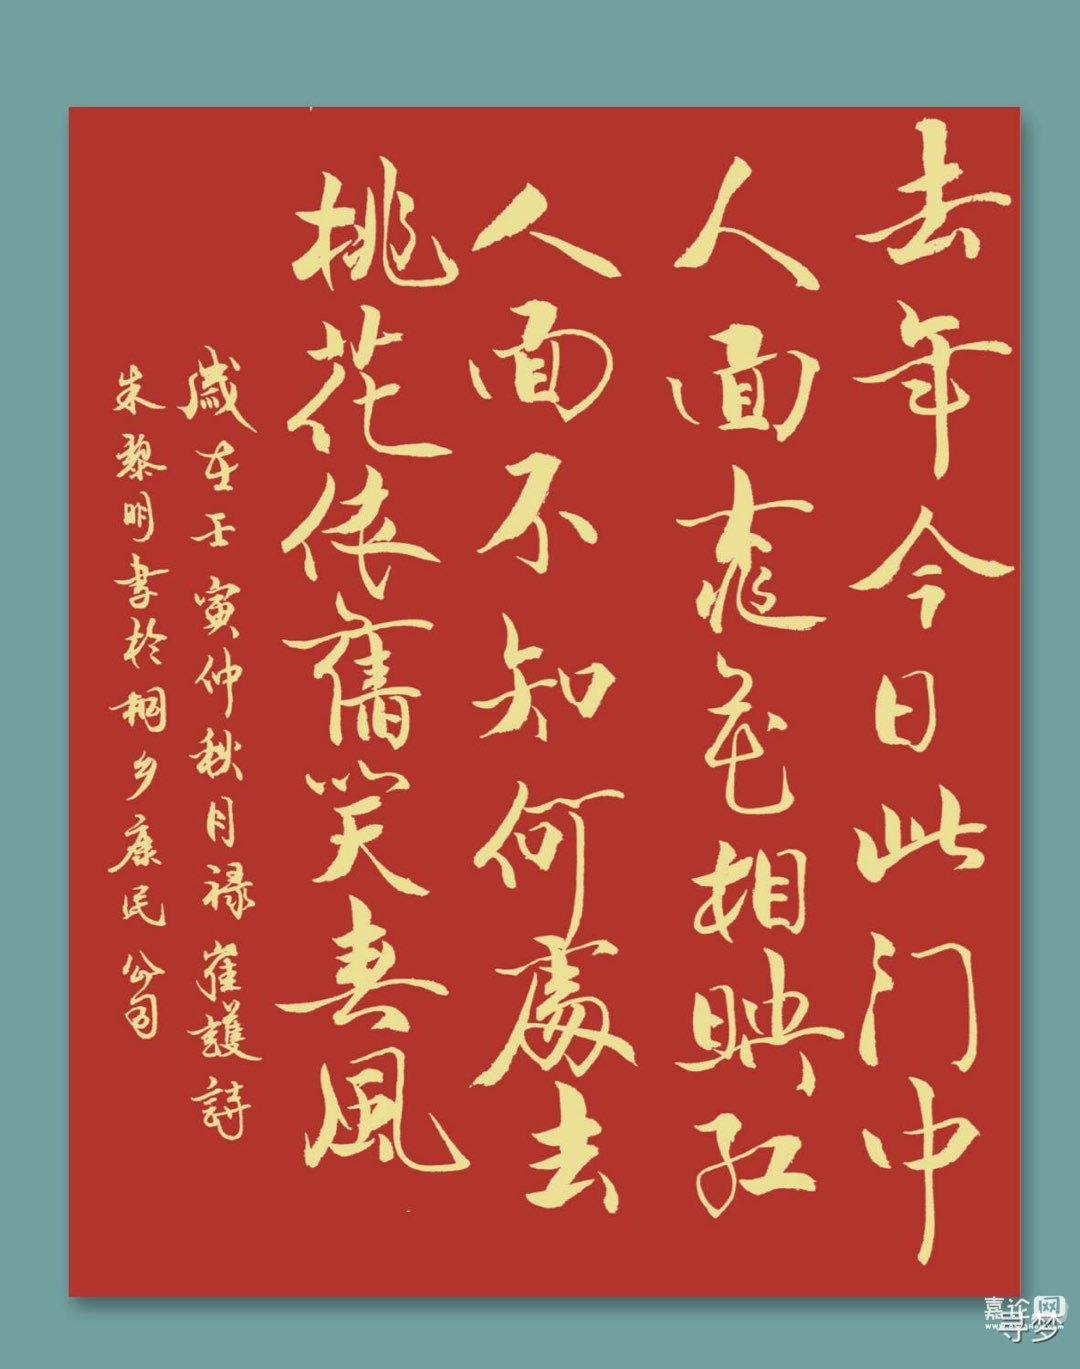 去年今日此门中
人面桃花相映红
人面不知何處去
桃花依舊笑春風
歲在壬寅仲秋月禄崔護詩
朱黎明書於桐乡康民公司
嘉论网
寻梦